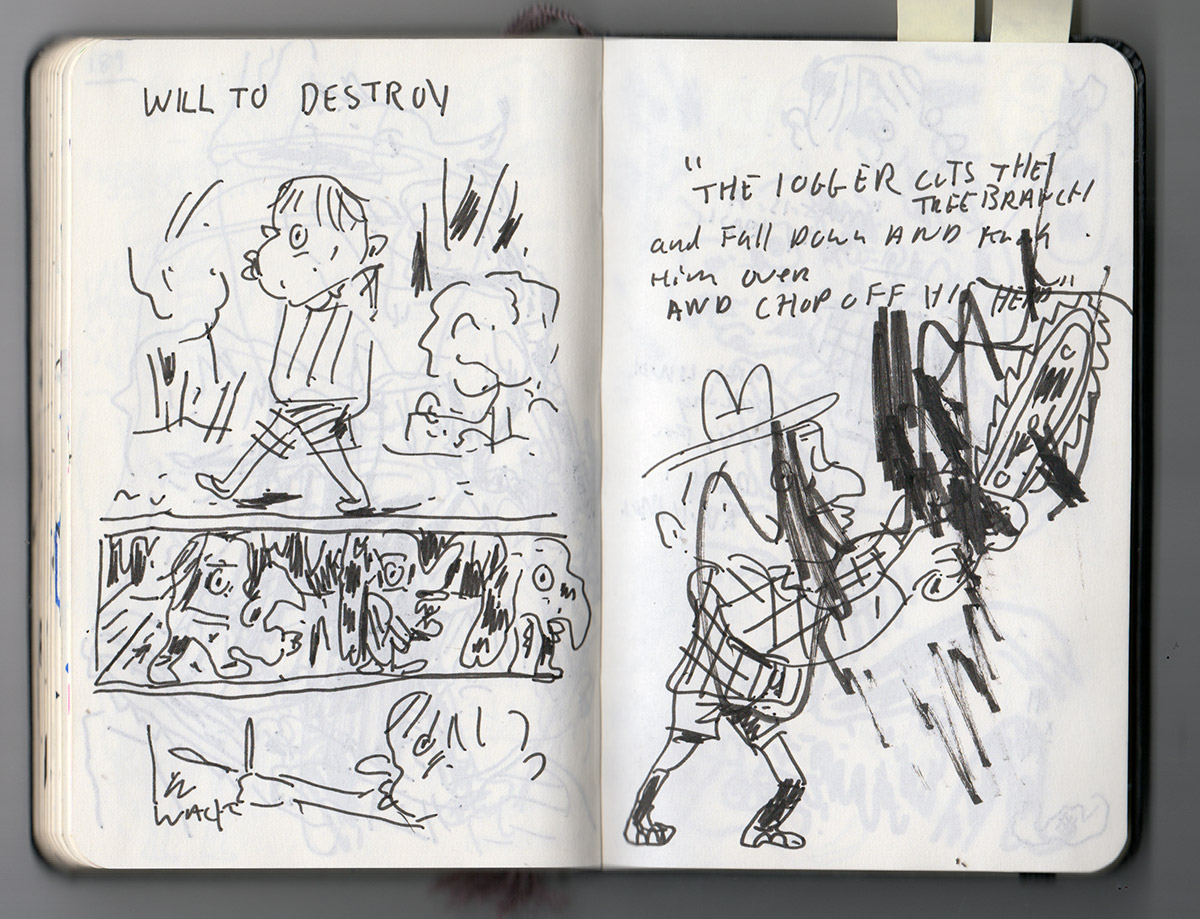 WILL TO DESTROY
"THE lOGGER CUTS THE
TREE BRANCH
and Fall Down AND
Him over
AND CHOP OFF HIS HEAD"